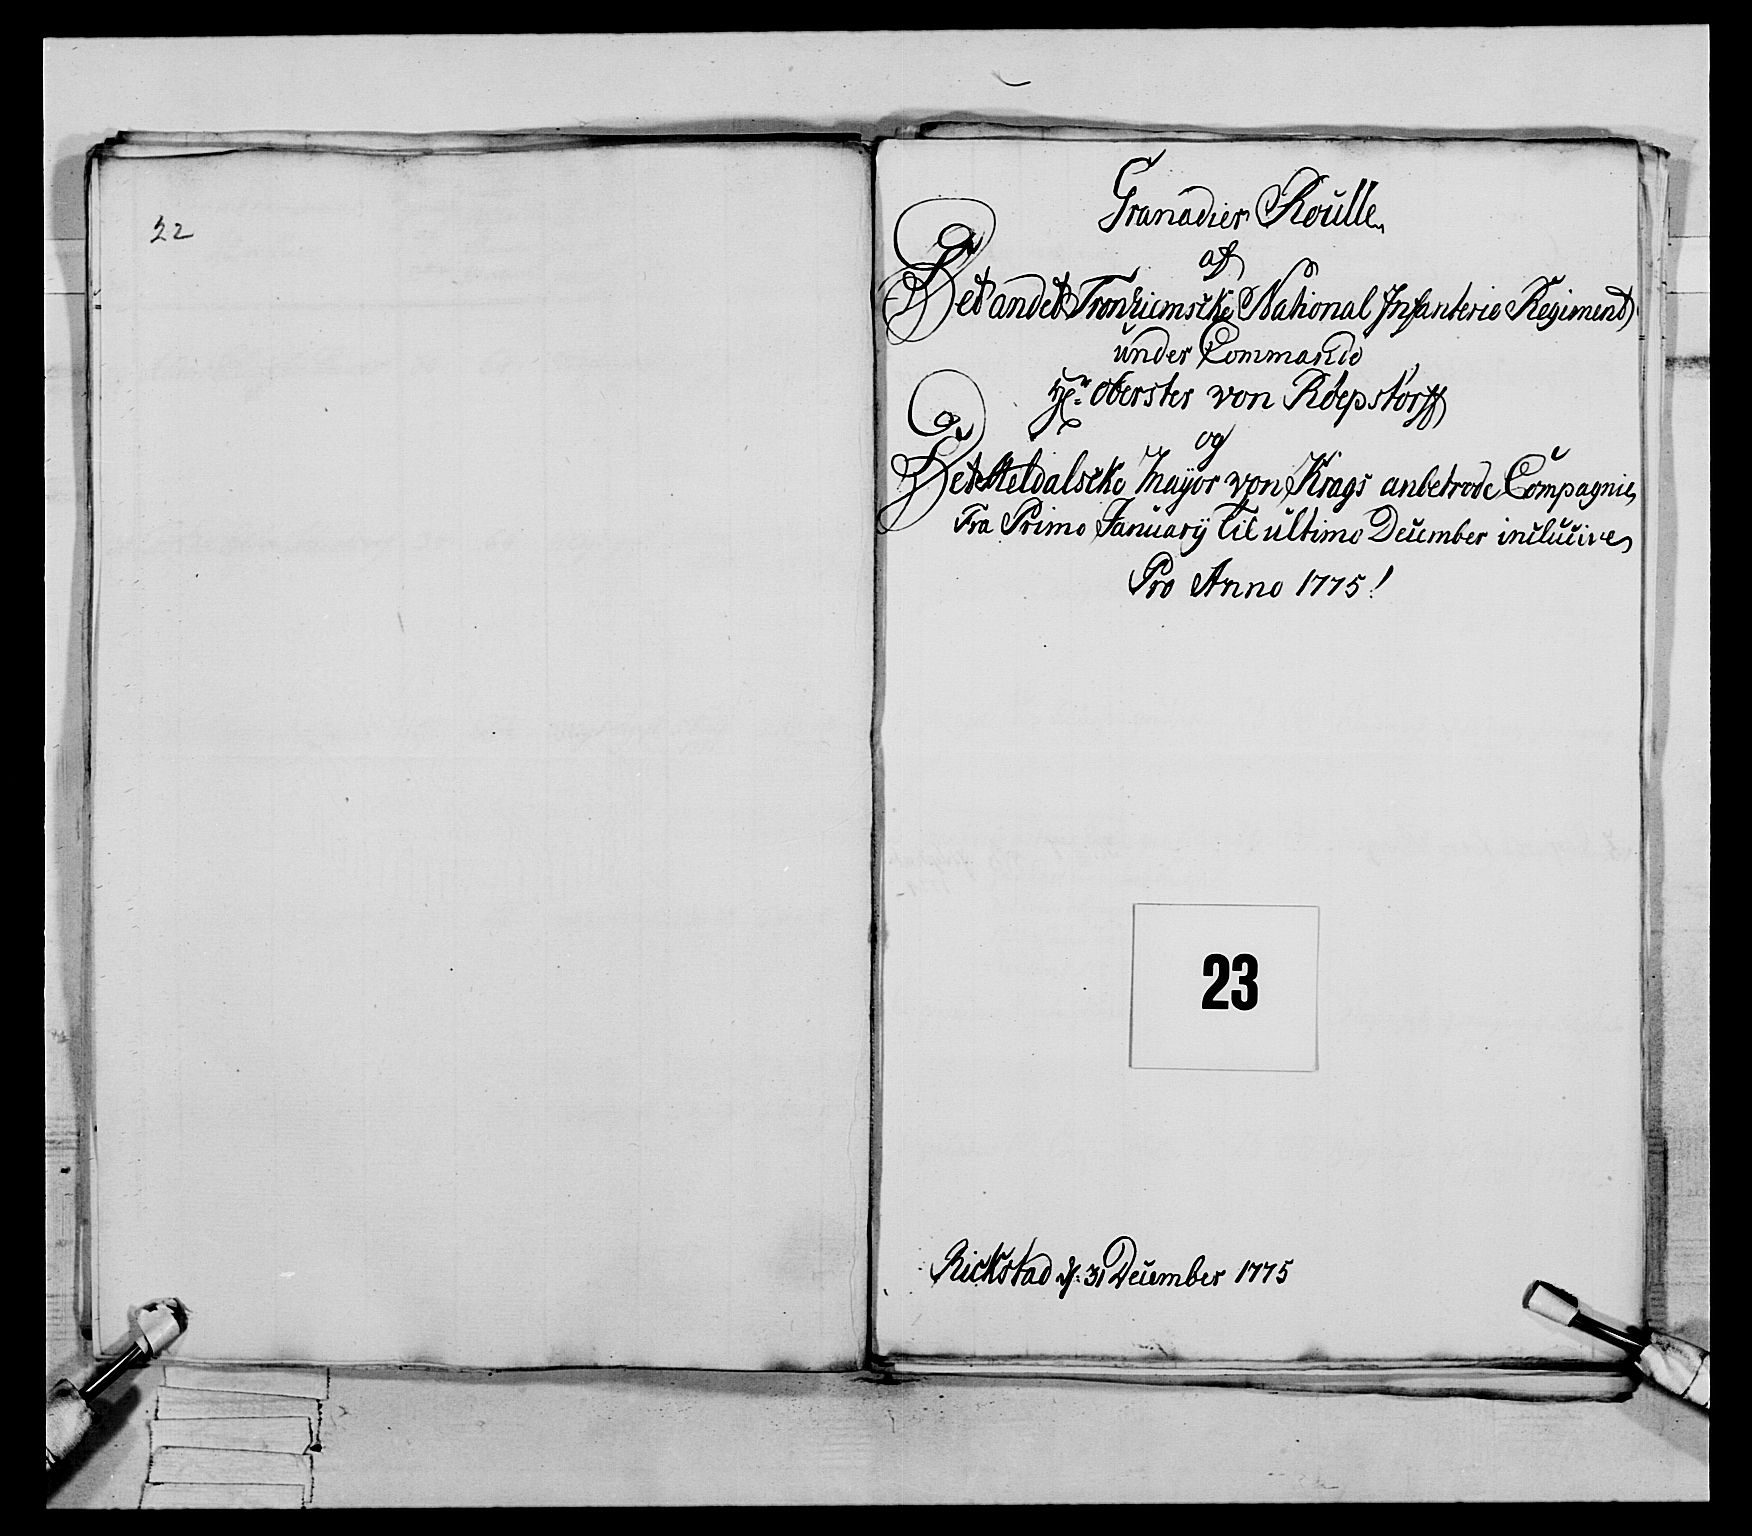 22
Granadier Roulle
af
Det andet Tronhiemske National Infanterie Regiment
under Commando
Hr: Oberster von Röepstorff
og
Det Meldalske Mayor von Krags anbetrode Compagnie
Fra Primo Januarÿ til ultimo December inclucive
Pro Anno 1775!
23
Rickstad d: 31 December 1775